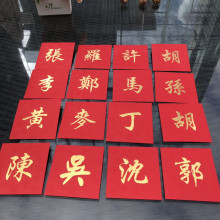 張 羅 許 胡
李 鄭 馬 孫
黃 麥 丁 胡
陳 吳 沈 郭